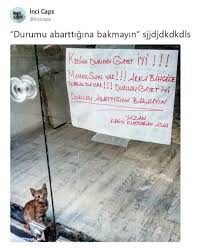 İnci Caps
@incicaps
"Durumu abarttığına bakmayın" sjjdjdkdkdls
KEDİNİN DURUMU GAYET İYİ!!!
MAMASI SUYU VAR!!! ARKA BAHÇEDE
VAR!!! DURUMU GAYET İYİ
DURUMU ABARTTIĞINA BAKMAYIN
YAZAN